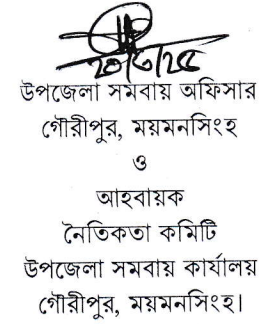 উপজেলা সমবায় অফিসার
গৌরীপুর, ময়মনসিংহ
ও
আহবায়ক
নৈতিকতা কমিটি
উপজেলা সমবায় কার্যালয়
গৌরীপুর, ময়মনসিংহ।